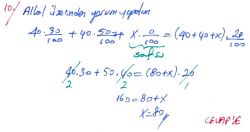 10) Alkol üzerinden yorum yapalım
40·30/100 + 40·50/100 + X·0/100 = (40+40+x)·20/100
saf su
40·30 + 50·40 = (80+x)·20
2 2 1
160 = 80+x
x = 80
CEVAP: E